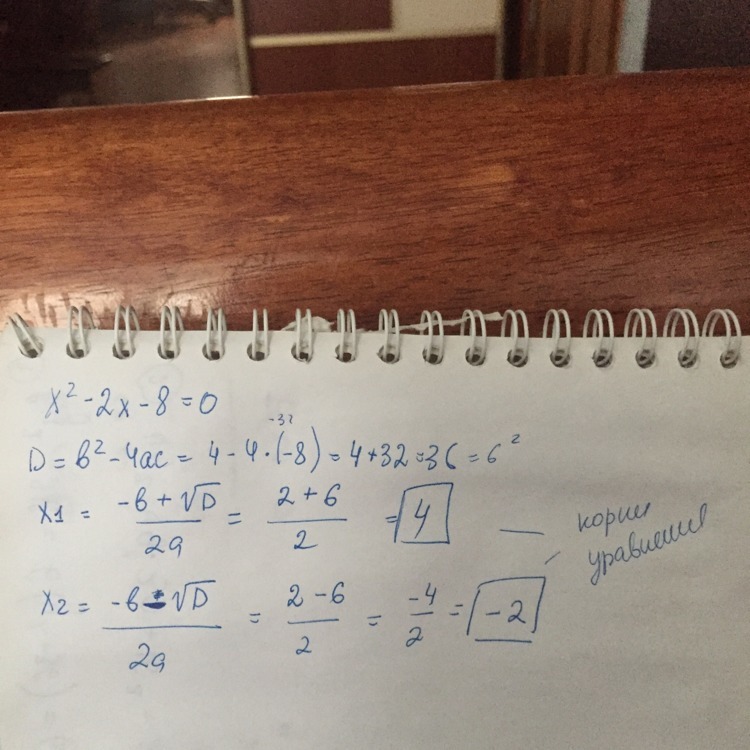 x² - 2x - 8 = 0
-32
D = b² - 4ac = 4 - 4 · (-8) = 4 + 32 = 36 = 6²
x1 = (-b + √D)/2a = (2 + 6)/2 = 4
корни
уравнения
x2 = (-b - √D)/2a = (2 - 6)/2 = -4/2 = -2